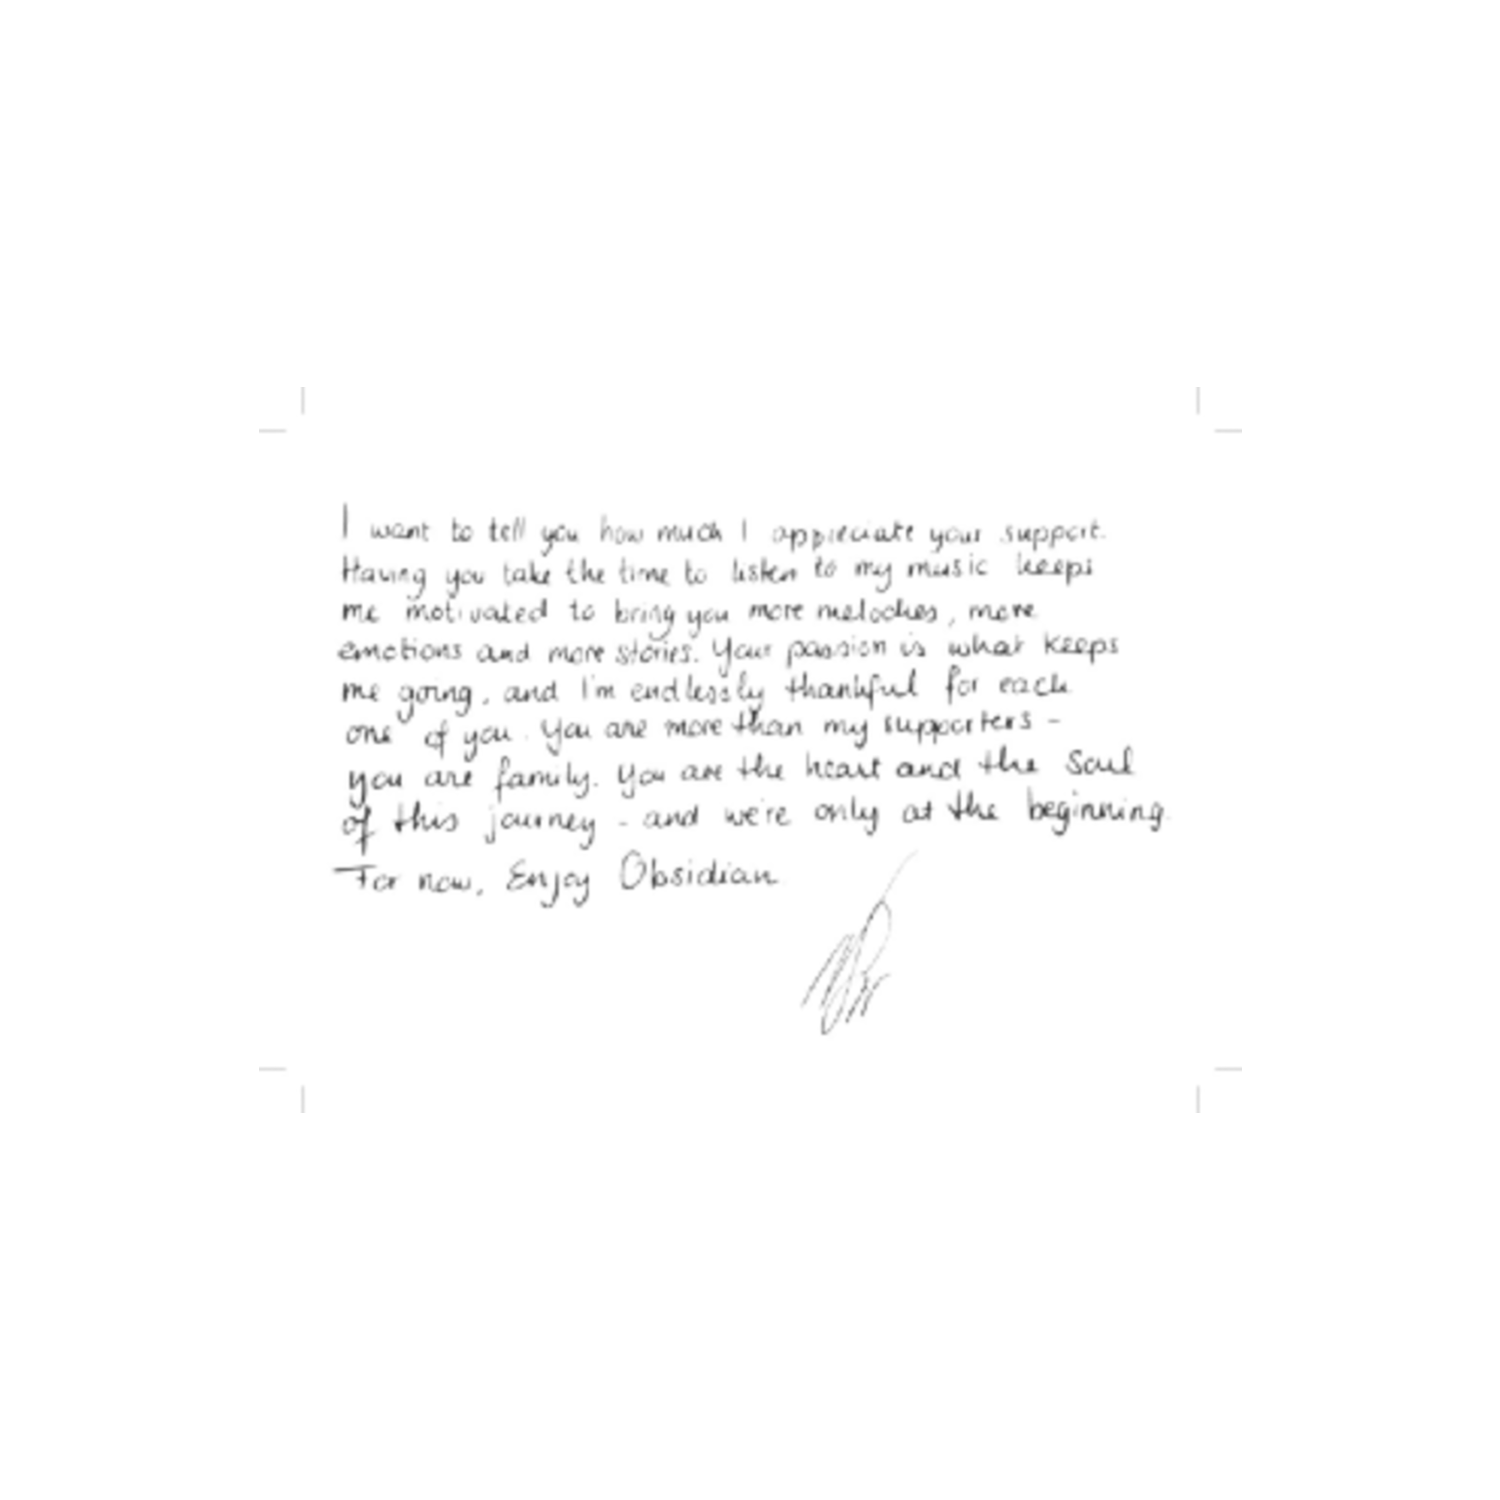 I want to tell you how much I appreciate your support.
Having you take the time to listen to my music keeps
me motivated to bring you more melodies, more
emotions and more stories. Your passion is what keeps
me going, and I'm endlessly thankful for each
one of you. You are more than my supporters -
you are family. You are the heart and the soul
of this journey - and we're only at the beginning.
For now, Enjoy Obsidian